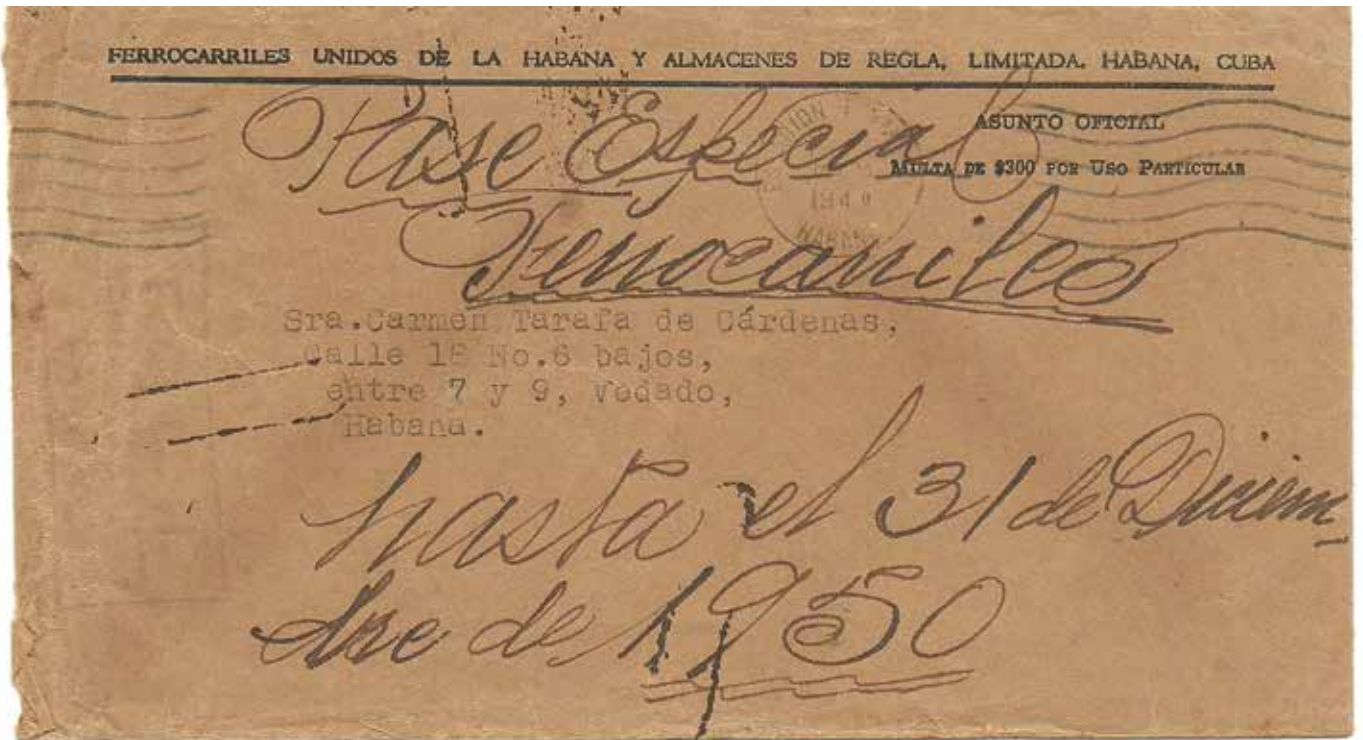 FERROCARRILES UNIDOS DE LA HABANA Y ALMACENES DE REGLA, LIMITADA. HABANA, CUBA
ASUNTO OFICIAL
MULTA DE $300 POR USO PARTICULAR
Pase Especial
Ferrocarriles
HABANA
Sra.Carmen Tarafa de Cárdenas,
Calle 18 No.6 bajos,
entre 7 y 9, Vedado,
Habana.
hasta el 31 de Diciem
bre de 1950